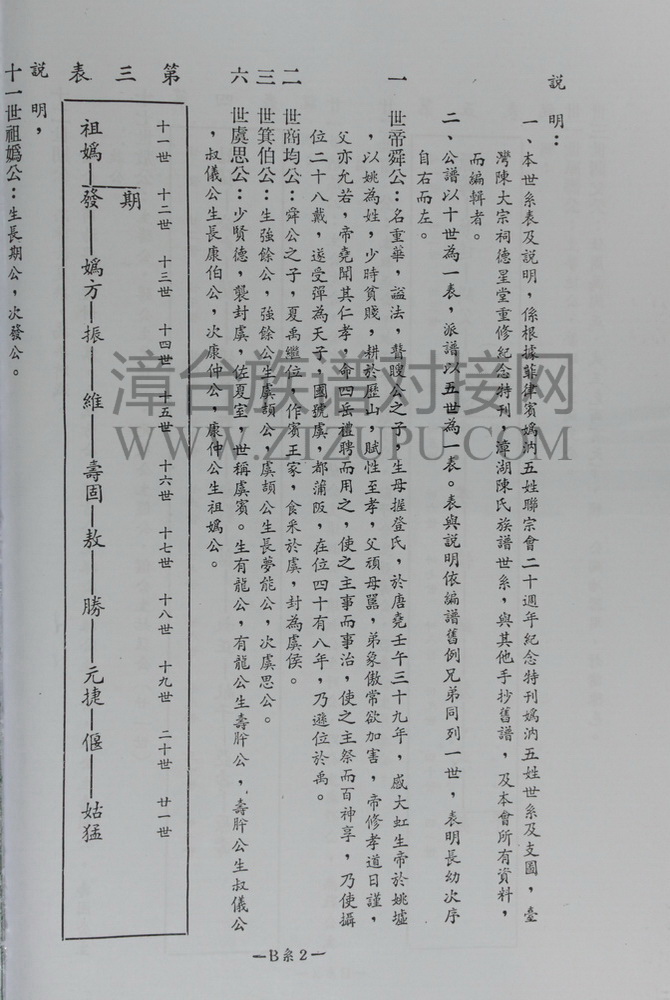 說明：
一、本世系表及說明，係根據菲律賓媯汭五姓聯宗會二十週年紀念特刊媯汭五姓世系及支圖，臺
灣陳大宗祠德星堂重修紀念特刊，漳湖陳氏族譜世系，與其他手抄舊譜，及本會所有資料，
而編輯者。
二、公譜以十世為一表，派譜以五世為一表。表與說明依編譜舊例兄弟同列一世，表明長幼次序
自右而左。
一世帝舜公：名重華，謚法，瞽瞍公之子，生母握登氏，於唐堯壬午三十九年，感大虹生帝於姚墟
，以姚為姓，少時貧賤，耕於歷山，賦性至孝，父頑母嚚，弟象傲常欲加害，帝修孝道日謹，
父亦允若，帝堯聞其仁孝，命四岳禮聘而用之，使之主事而事治，使之主祭而百神享，乃使攝
位二十八戴，遂受彈為天子，國號虞，都蒲阪，在位四十有八年，乃遜位於禹。
二世商均公：舜公之子，夏禹繼位，作賓王家，食釆於虞，封為虞侯。
三世箕伯公：生強餘公，強餘公生虞頡公，虞頡公生長夢能公，次虞思公。
六世虞思公：少賢德，襲封虞，佐夏室，世稱虞賓。生有龍公，有龍公生壽肸公，壽肸公生叔儀公
，叔儀公生長康伯公，次康仲公，康仲公生祖媯公。
第三表
十一世 十二世 十三世 十四世 十五世 十六世 十七世 十八世 十九世 二十世 廿一世
期
祖媯—發—媯方—振—維 壽固—敖—勝—元捷—偃—姑猛
說明，
十一世祖媯公：生長期公，次發公。
—B系2—
漳台族谱对接网
WWW.ZTZUPU.COM